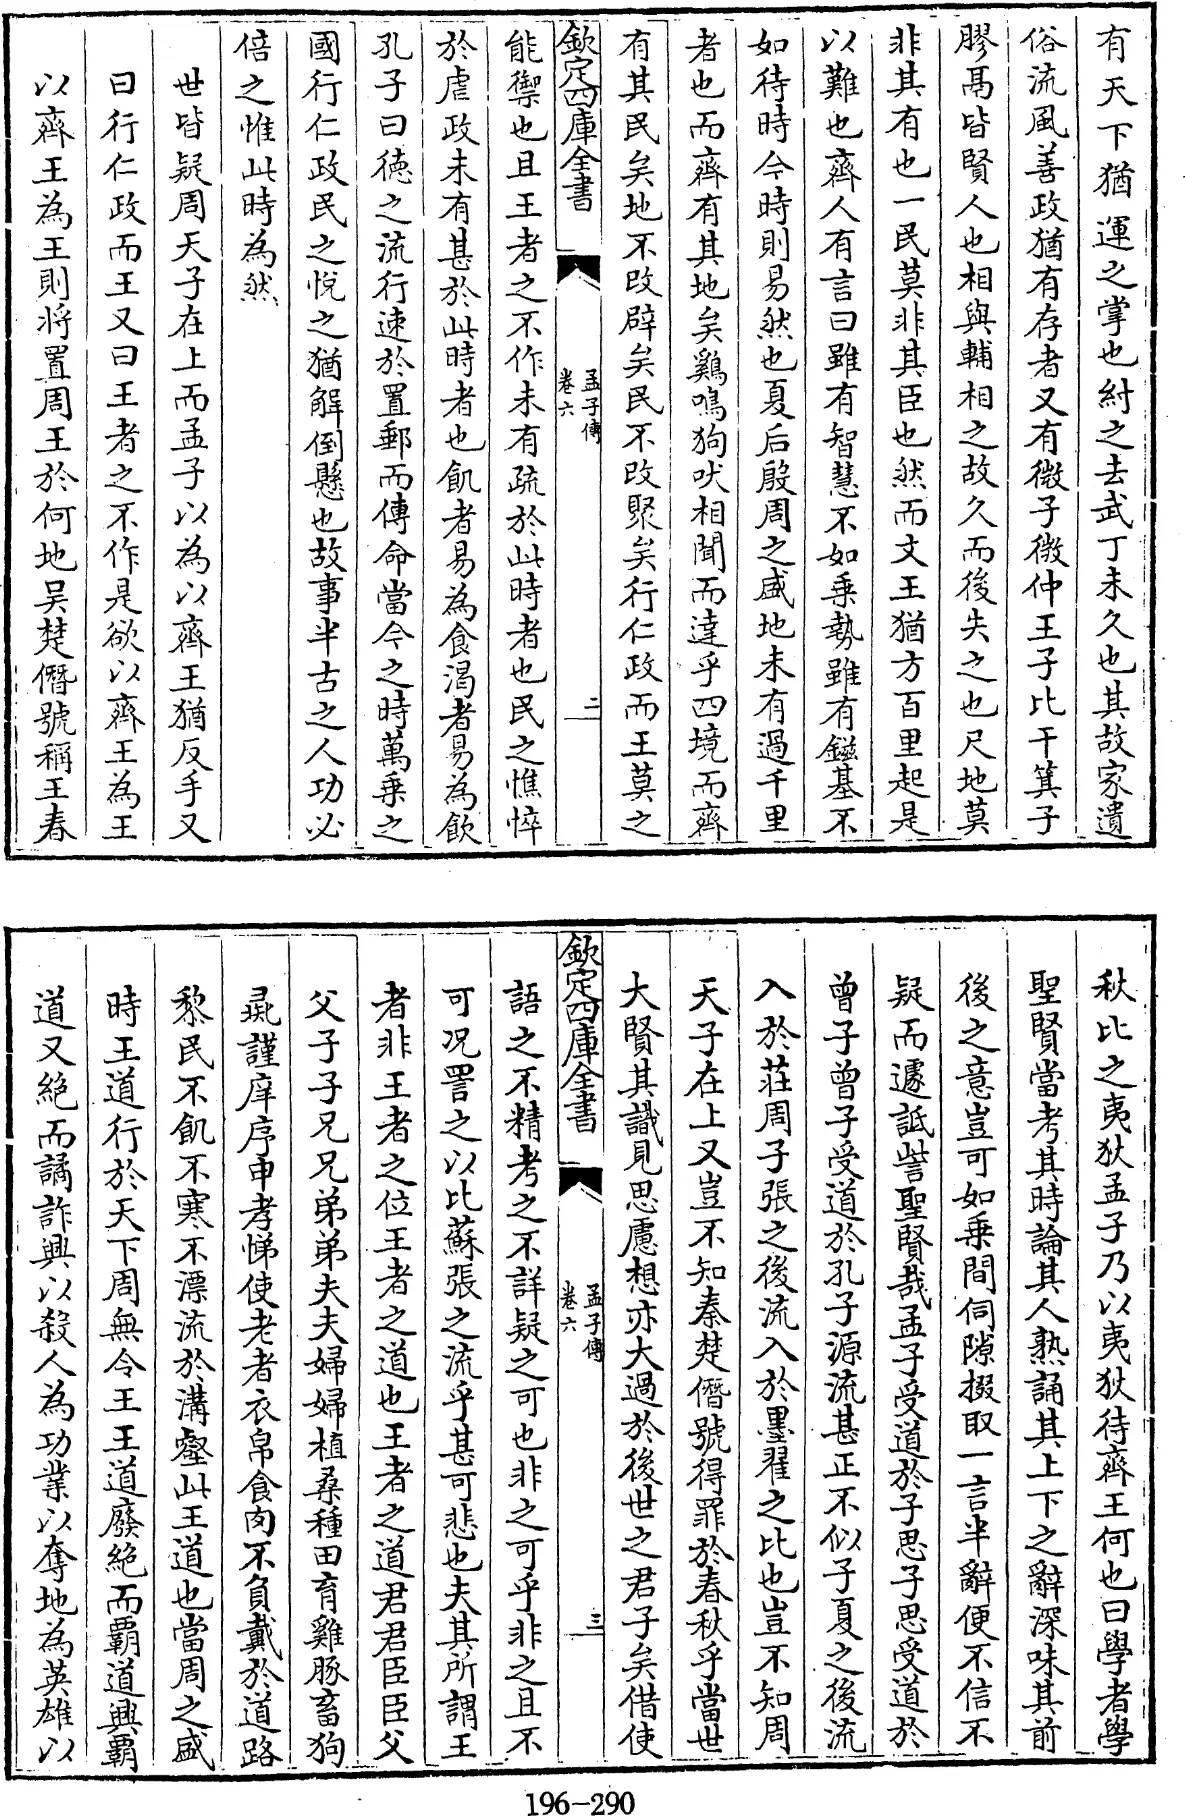 有天下猶運之掌也紂之去武丁未久也其故家遺
俗流風善政猶有存者又有微子微仲王子比干箕子
膠鬲皆賢人也相與輔相之故久而後失之也尺地莫
非其有也一民莫非其臣也然而文王猶方百里起是
以難也齊人有言曰雖有智慧不如乗勢雖有鎡基不
如待時今時則易然也夏后殷周之盛地未有過千里
者也而齊有其地矣鷄鳴狗吠相聞而達乎四境而齊
有其民矣地不改辟矣民不改聚矣行仁政而王莫之
欽定四庫全書
孟子傳
卷六
二
能禦也且王者之不作未有疏於此時者也民之憔悴
於虐政未有甚於此時者也飢者易為食渴者易為飲
孔子曰徳之流行速於置郵而傳命當今之時萬乗之
國行仁政民之悅之猶解倒懸也故事半古之人功必
倍之惟此時為然
世皆疑周天子在上而孟子以為以齊王猶反手又
曰行仁政而王又曰王者之不作是欲以齊王為王
以齊王為王則將置周王於何地吴楚僭號稱王春
秋比之夷狄孟子乃以夷狄待齊王何也曰學者學
聖賢當考其時論其人熟誦其上下之辭深味其前
後之意豈可如乗間伺隙掇取一言半辭便不信不
疑而遽詆訾聖賢哉孟子受道於子思子思受道於
曾子曾子受道於孔子源流甚正不似子夏之後流
入於莊周子張之後流入於墨翟之比也豈不知周
天子在上又豈不知秦楚僭號得罪於春秋乎當世
大賢其識見思慮想亦大過於後世之君子矣借使
欽定四庫全書
孟子傳
卷六
三
語之不精考之不詳疑之可也非之可乎非之且不
可况詈之以比蘇張之流乎甚可悲也夫其所謂王
者非王者之位王者之道也王者之道君君臣臣父
父子子兄兄弟弟夫夫婦婦植桑種田育雞豚畜狗
彘謹庠序申孝悌使老者衣帛食肉不負戴於道路
黎民不飢不寒不漂流於溝壑此王道也當周之盛
時王道行於天下周無令王王道廢絶而霸道興霸
道又絶而譎詐興以殺人為功業以奪地為英雄以
196-290